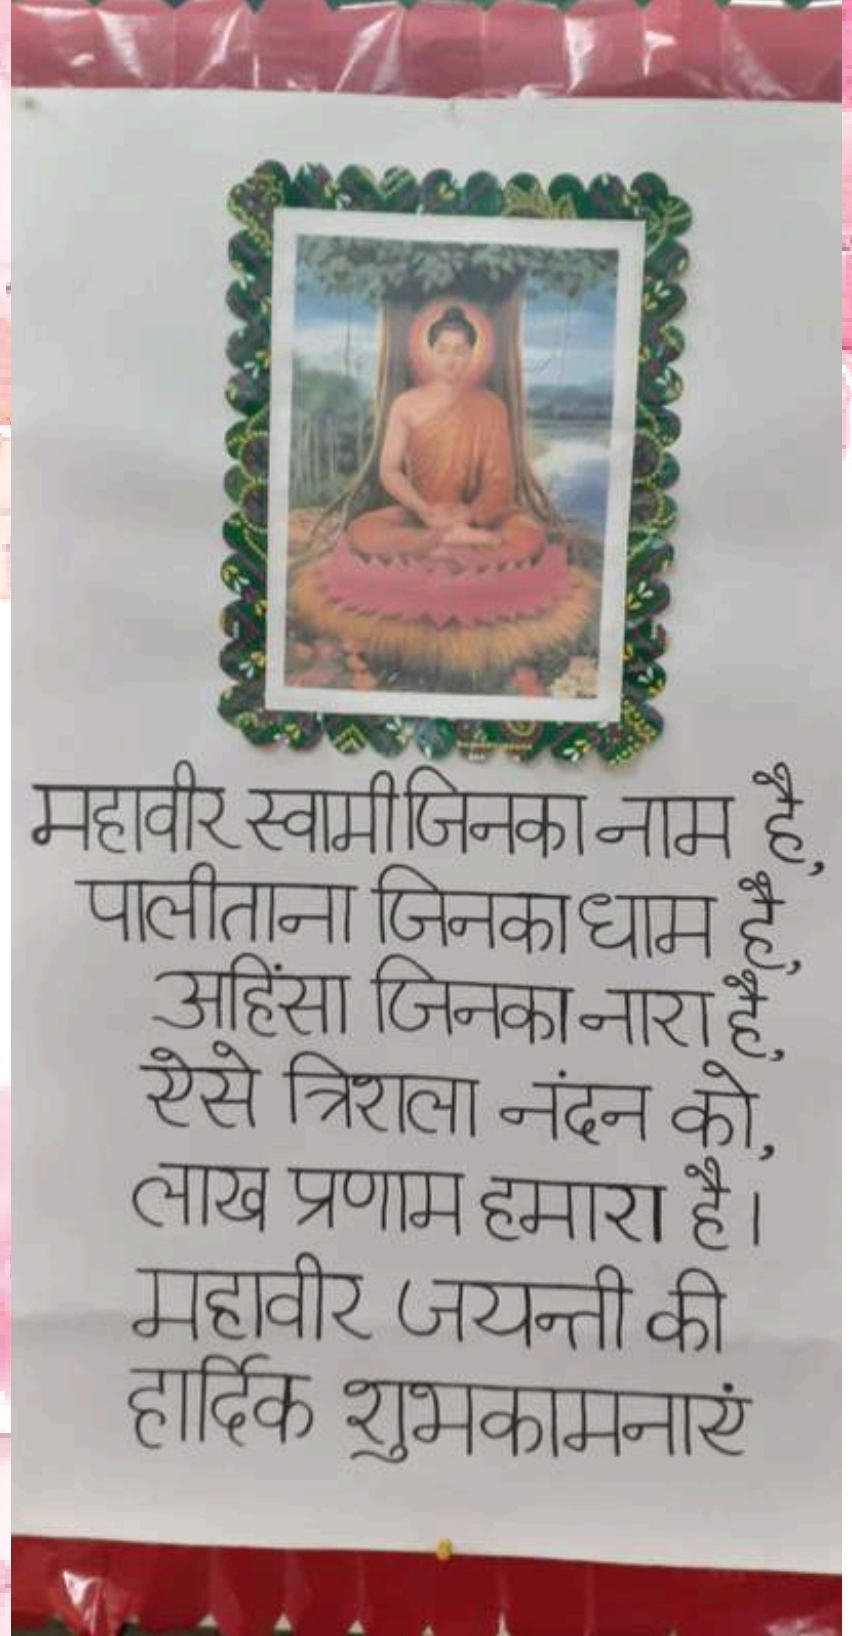 महावीर स्वामी जिनका नाम है,
पालीताना जिनका धाम है,
अहिंसा जिनका नारा है,
ऐसे त्रिशला नंदन को,
लाख प्रणाम हमारा है।
महावीर जयन्ती की
हार्दिक शुभकामनाएं